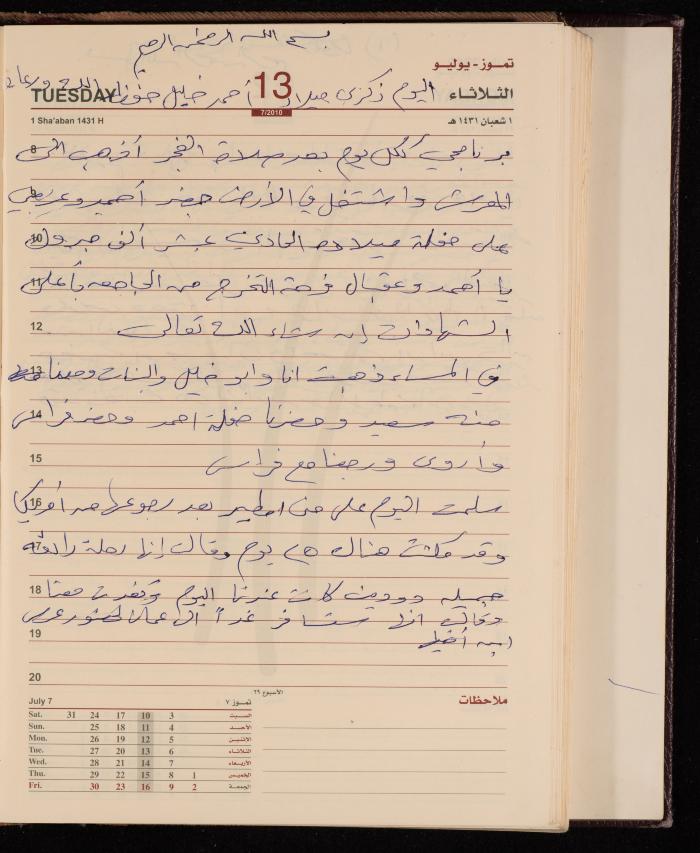 بسم الله الرحمن الرحيم
تموز - يوليو
TUESDAY 13 الثلاثاء
اليوم ذكرى ميلاد أحمد خليل حفظه الله ورعاه
7/2010
1 Sha'aban 1431 H ١ شعبان ١٤٣١ هـ
8 برنامجي ككل يوم بعد صلاة الفجر أذهب الى
9 المفرش واشتغل في الأرض حضر أحمد وعزمني
10 على حفلة ميلاده الحادي عشر ألف مبروك
11 يا أحمد وعقبال فرحة التخرج من الجامعه بأعلى
12 الشهادات إن شاء الله تعالى
13 في المساء ذهبت انا وابو خليل والبنات ومعنا
14 منه سعيد وحضرنا حفلة احمد وحضر فراس
15 وأروى ورجعنا مع فراس
16 سلمت اليوم على منى امطير بعد رجوعها من أمريكا
17 وقد مكثت هناك ٤٥ يوم وقالت إنها رحلة رائعه
18 جميله دودين كانت عندنا اليوم وتغدت معنا
19 وقالت انها ستسافر غداً الى عمان لحضور عرس
ابن أخيها
20
July 7 تموز ٧
Sat. 31 24 17 10 3 السبت
Sun. 25 18 11 4 الأحد
Mon. 26 19 12 5 الاثنين
Tue. 27 20 13 6 الثلاثاء
Wed. 28 21 14 7 الأربعاء
Thu. 29 22 15 8 1 الخميس
Fri. 30 23 16 9 2 الجمعة
الأسبوع ٢٩
ملاحظات